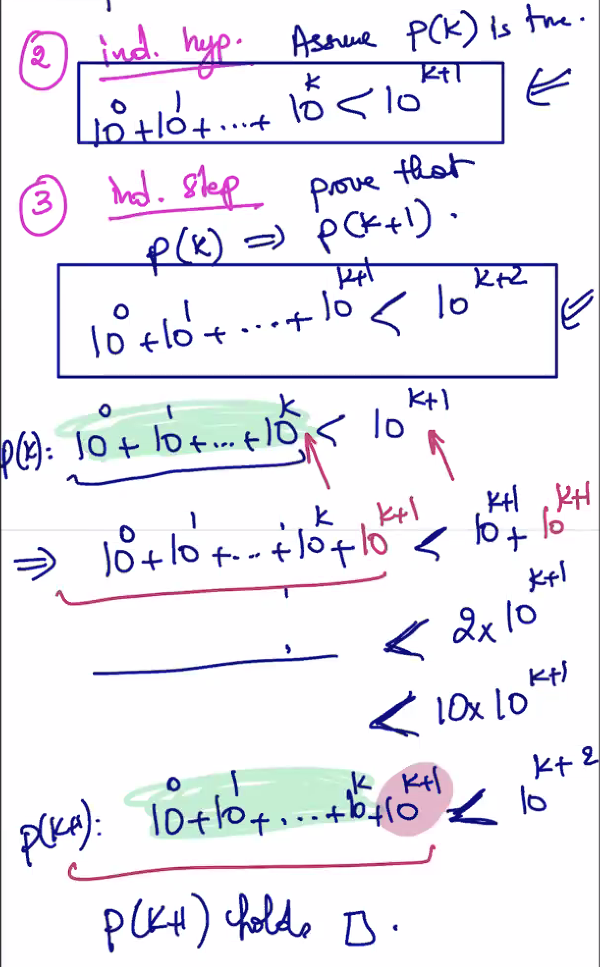 ② ind. hyp. Assume P(k) is true.
10⁰+10¹+...+ 10ᵏ < 10ᵏ⁺¹
③ ind. step prove that
P(k) ⇒ P(k+1).
10⁰+10¹+...+10ᵏ⁺¹ < 10ᵏ⁺²
P(k): 10⁰+10¹+...+10ᵏ < 10ᵏ⁺¹
⇒ 10⁰+10¹+...+10ᵏ+10ᵏ⁺¹ < 10ᵏ⁺¹+10ᵏ⁺¹
< 2x10ᵏ⁺¹
< 10x10ᵏ⁺¹
P(k+1): 10⁰+10¹+...+10ᵏ+10ᵏ⁺¹ < 10ᵏ⁺²
P(k+1) holds □.